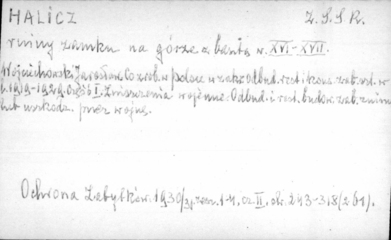 HALICZ Z.S.S.R.
ruiny zamku na górze z basztą w. XVI-XVII.
Wojciechowski Jarosław. Co zrob. w polsce w zakr. odbud. rest. i kons. zab. szt. w
l. 1919-1929. Część I. Zniszczenia wojenne. Odbud. i rest. budow. zab. znim
lub uszkodz. przez wojnę.
Ochrona Zabytków. 1930/31, zesz. 1-4, cz. II, str. 243-318 (261).